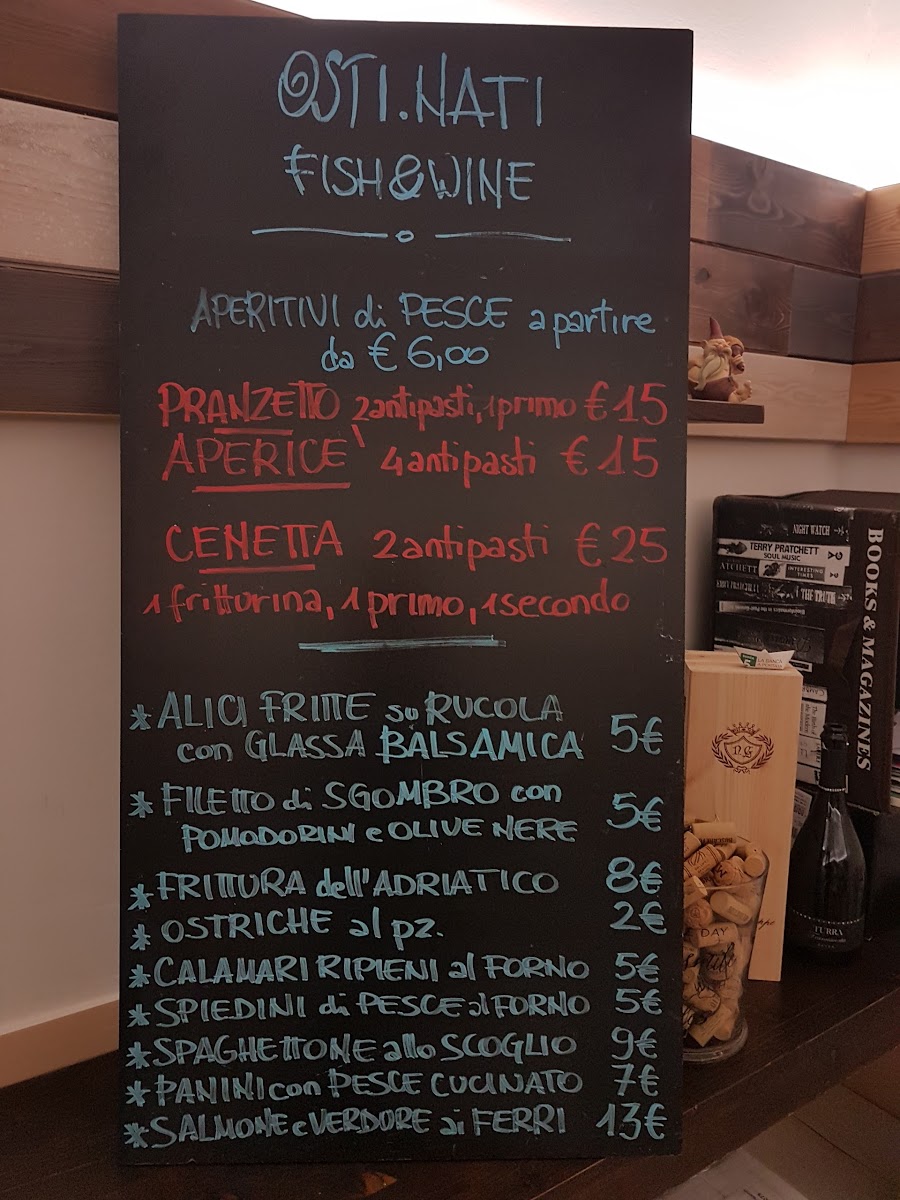 OSTI.NATI
FISH&WINE
APERITIVI di PESCE a partire
da € 6,00
PRANZETTO 2antipasti, 1primo €15
APERICE' 4antipasti €15
CENETTA 2antipasti €25
1fritturina, 1primo, 1secondo
*ALICI FRITTE su RUCOLA
con GLASSA BALSAMICA 5€
*FILETTO di SGOMBRO con
POMODORINI e OLIVE NERE 5€
*FRITTURA dell'ADRIATICO 8€
*OSTRICHE al pz. 2€
*CALAMARI RIPIENI al FORNO 5€
*SPIEDINI di PESCE al FORNO 5€
*SPAGHETTONE allo SCOGLIO 9€
*PANINI con PESCE CUCINATO 7€
*SALMONE e VERDURE ai FERRI 13€
NIGHT WATCH
TERRY PRATCHETT
SOUL MUSIC
INTERESTING
TIMES
BOOKS & MAGAZINES
LA BANCA
TURRA
DAY